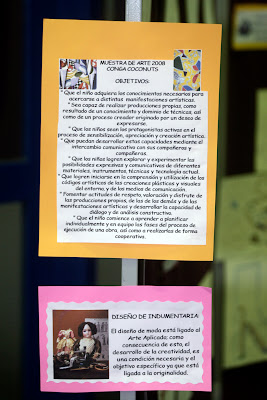 MUESTRA DE ARTE 2008
CONGA COCONUTS
OBJETIVOS:
* Que el niño adquiera los conocimientos necesarios para
acercarse a distintas manifestaciones artísticas.
* Sea capaz de realizar producciones propias, como
resultado de un conocimiento y dominio de técnicas, así
como de un proceso creador originado por un deseo de
expresarse.
* Que los niños sean los protagonistas activos en el
proceso de sensibilización, apreciación y creación artística.
* Que puedan desarrollar estas capacidades mediante el
intercambio comunicativo con sus compañeros y
compañeras.
* Que los niños logren explorar y experimentar las
posibilidades expresivas y comunicativas de diferentes
materiales, instrumentos, técnicas y tecnología actual.
* Que logren iniciarse en la comprensión y utilización de los
códigos artísticos de las creaciones plásticas y visuales
del entorno, y de los medios de comunicación.
* Fomentar actitudes de respeto, valoración y disfrute de
las producciones propias, de las de los demás y de las
manifestaciones artísticas y desarrollar la capacidad de
diálogo y de análisis constructivo.
* Que el niño comience a aprender a planificar
individualmente y en equipo las fases del proceso de
ejecución de una obra, así como a realizarlas de forma
cooperativa.
DISEÑO DE INDUMENTARIA:
El diseño de moda está ligado al
Arte Aplicado; como
consecuencia de esto, el
desarrollo de la creatividad, es
una condición necesaria y el
objetivo específico ya que está
ligada a la originalidad.